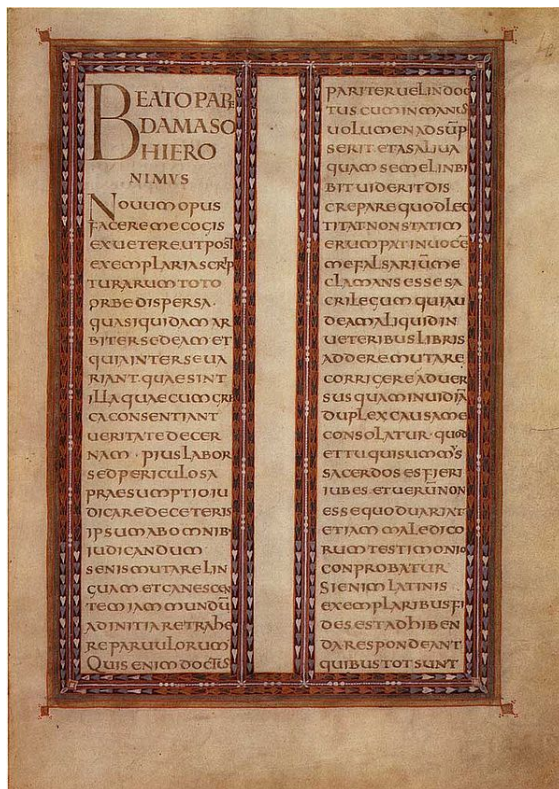 BEATO PAPE
DAMASO
HIERO
NIMVS
NOUUM OPUS
FACERE ME COGIS
EXUETERE UT POST
EXEMPLARIA SCRIP
TURARUM TOTO
ORBE DISPERSA ·
QUASI QUIDAM AR
BITER SEDEAM ET
QUIA INTER SE UA
RIANT · QUAE SINT
ILLA QUAE CUM GRE
CA CONSENTIANT
UERITATE DECER
NAM · PIUS LABOR
SED PERICULOSA
PRAESUMPTIO IU
DICARE DE CETERIS
IPSUM AB OMNIB·
IUDICANDUM ·
SENIS MUTARE LIN
GUAM ET CANESCEN
TEM IAM MUNDŪ
AD INITIA RETRAHE
RE PARUULORUM
QUIS ENIM DOCTUS
PARITER UEL INDOC
TUS CUM IN MANUS
UOLUMEN ADSŪP
SERIT · ET A SALIUA
QUAM SEMEL INBI
BIT UIDERIT DIS
CREPARE QUOD LEC
TITAT NON STATIM
ERUMPAT IN UOCĒ
ME FALSARIŪ ME
CLAMANS ESSE SA
CRILEGUM QUI AU
DEAM ALIQUID IN
UETERIBUS LIBRIS
ADDERE MUTARE
CORRIGERE ADUER
SUS QUAM INUIDIĀ
DUPLEX CAUSA ME
CONSOLATUR · QUOD
ET TU QUI SUMMUS
SACERDOS ES FIERI
IUBES · ET UERŪ NON
ESSE QUOD UARIAT
ETIAM MALEDICO
RUM TESTIMONIO
CONPROBATUR
SI ENIM LATINIS
EXEMPLARIBUS FI
DES EST ADHIBEN
DA RESPONDEANT
QUIBUS TOT SUNT